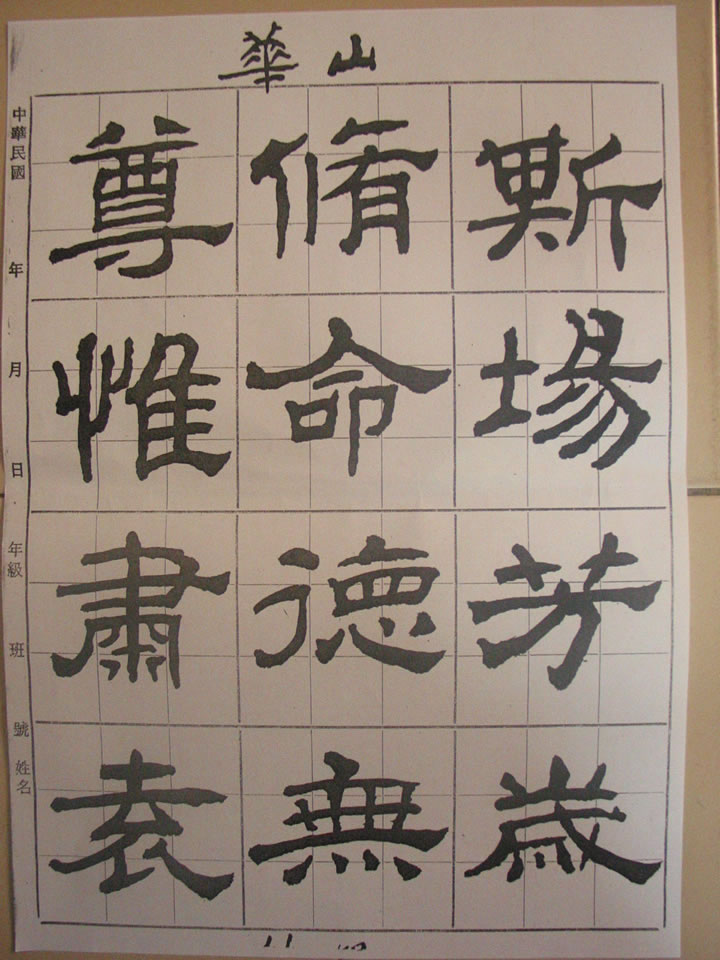 華山
斯場芳歲
脩命德無
尊惟肅袁
中華民國 年 月 日 年級 班 號 姓名